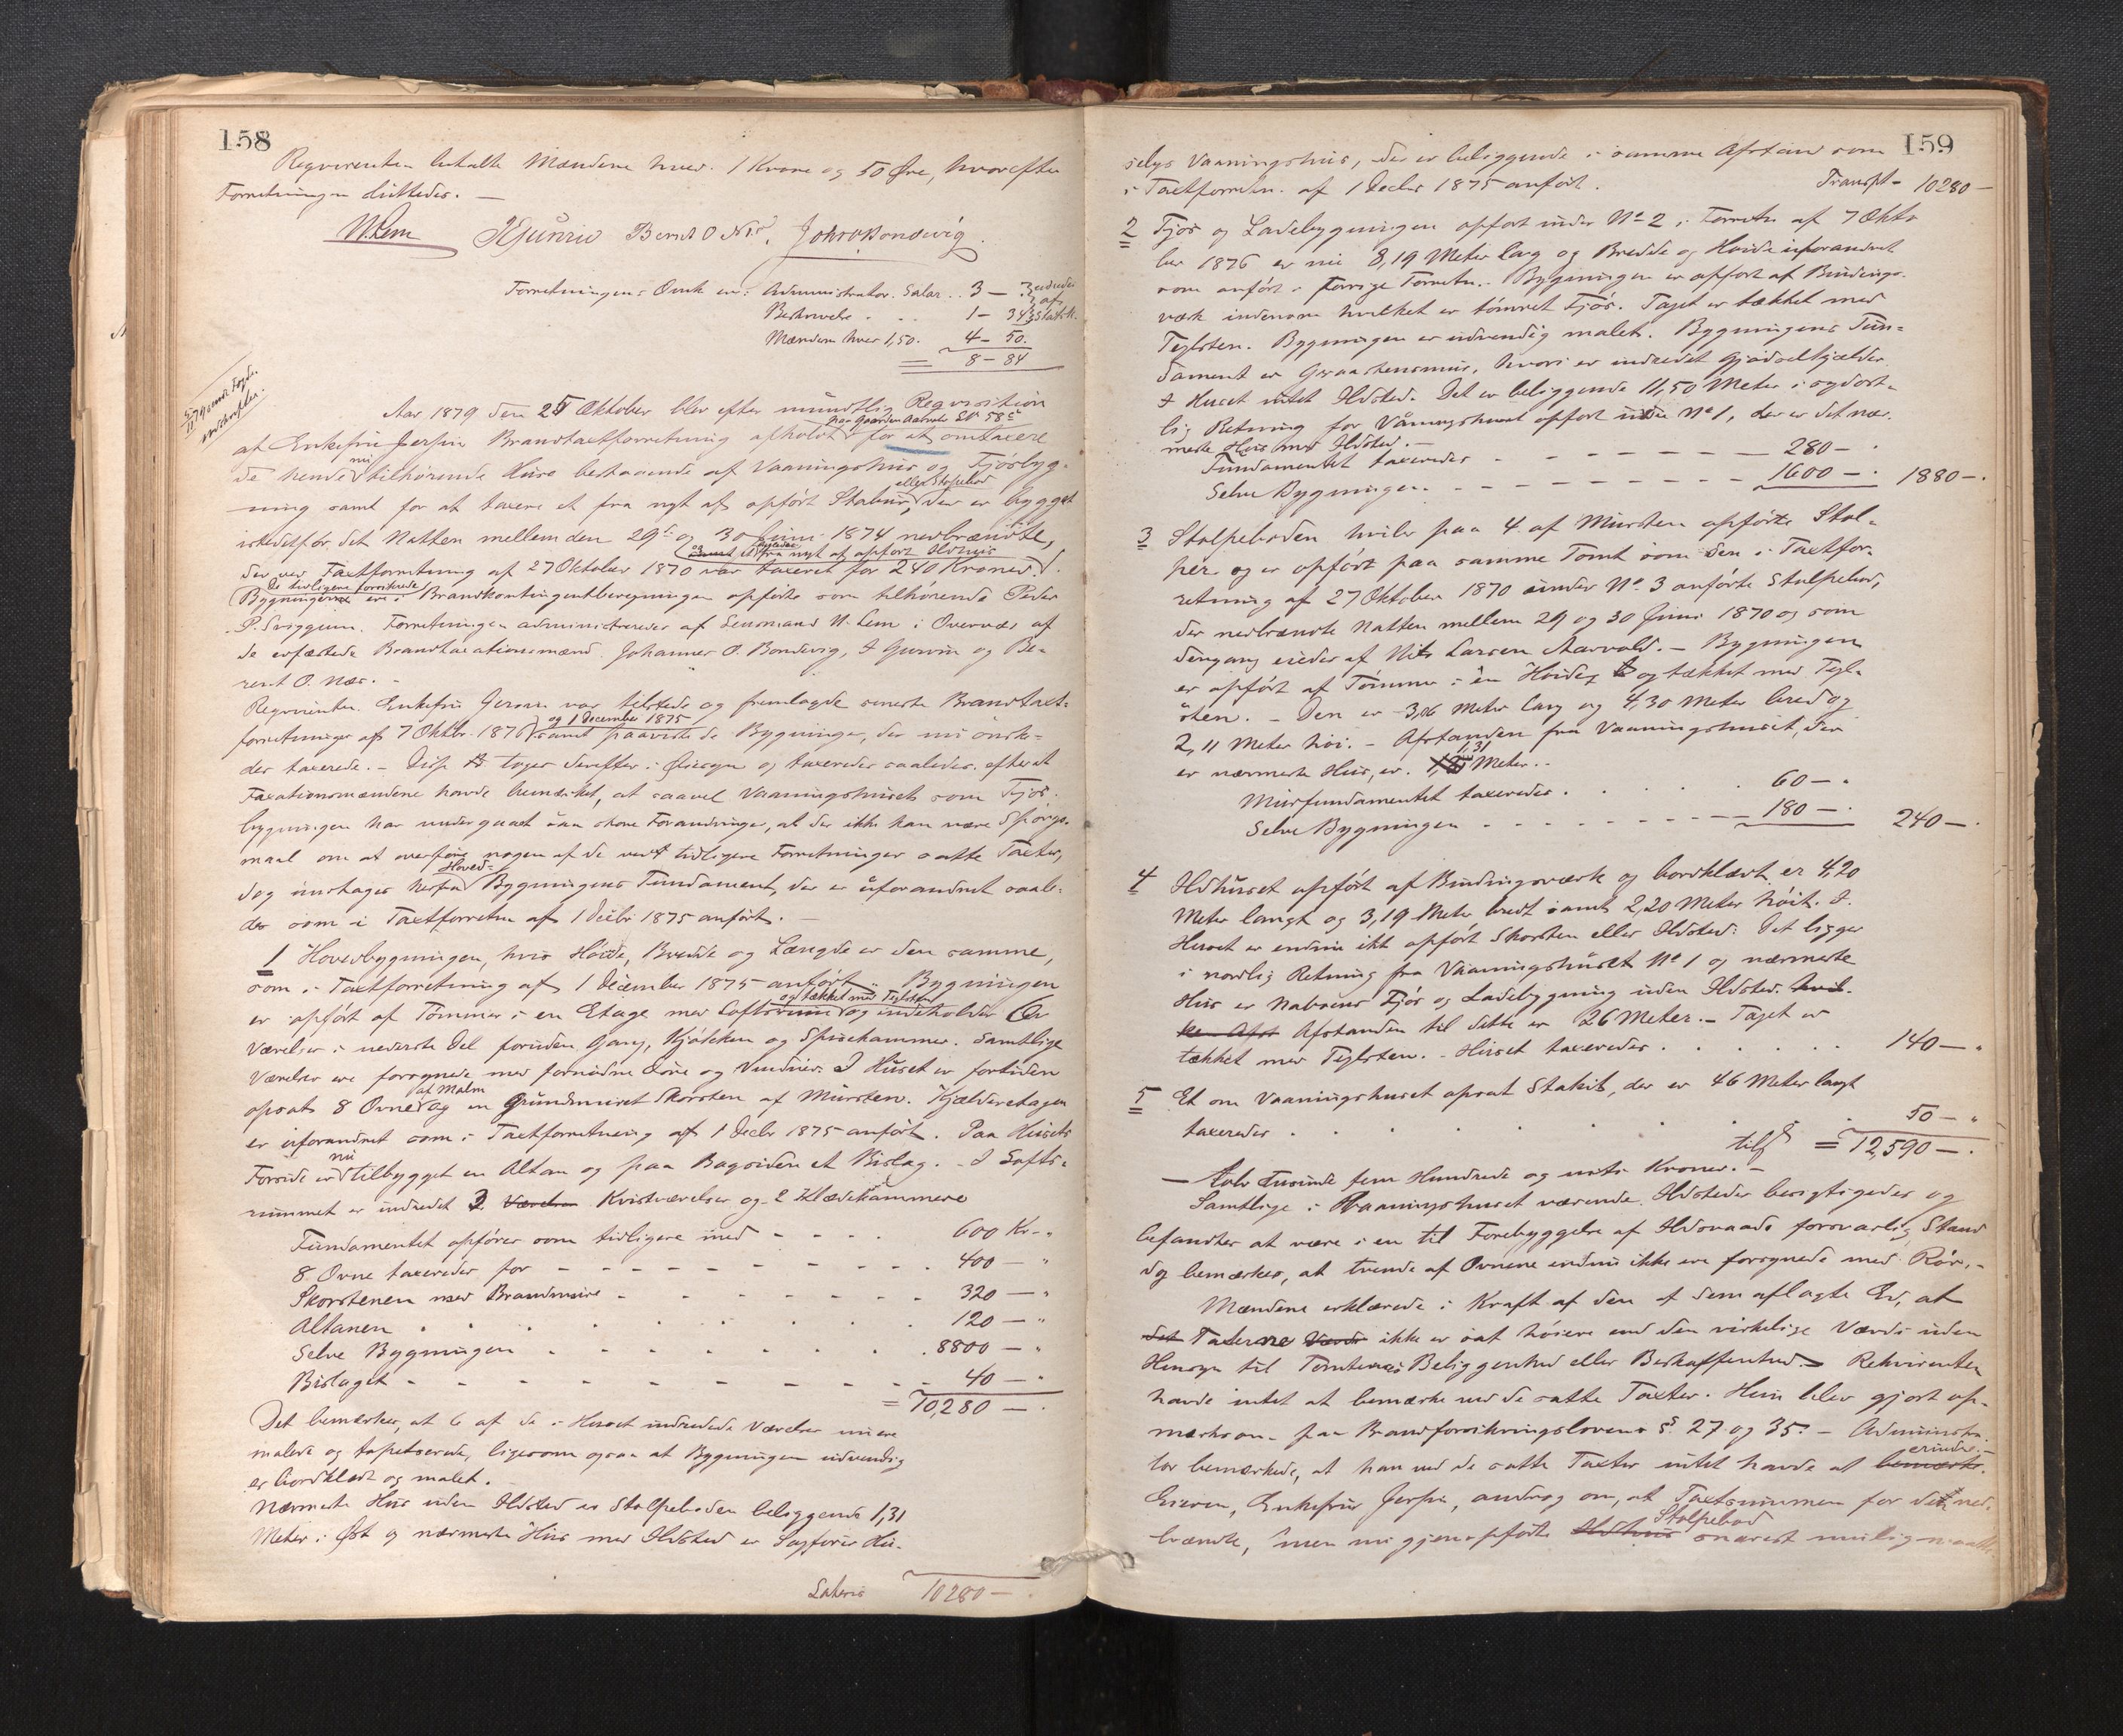 158
Reqvirenten betalte Mændene hver 1 Krone og 50 Øre, hvorefter
Forretningen sluttedes. —
N. Lem Bernt O Nes. Joh: O Bondevig.
Forretningens Omk. er: Administrator. Salar .. 3 —
Beskrivelse . . . 1 — 34
Mændene hver 1,50. 4 — 50.
8 — 84
Aar 1879 den 25 Oktober blev efter mundtlig Reqvisition
af Enkefru Jersin Brandtaxtforretning afholdt paa Gaarden Aarvold for at omtaxere
de hende nu tilhørende Huse bestaaende af Vaaningshus og Fjøsbyg-
ning samt for at taxere et fra nyt af opført Stabur, eller Stolpebod der er bygget
istedetfor det Natten mellem den 29de og 30 Juni 1874 nedbrændte,
der ved Taxtforretning af 27 Oktober 1870 var taxeret for 240 Kroner og et fra nyt af opført Ildhus.
Bygningerne ere i Brandkontingentberegningen opførte som tilhørende Peder
P. Sviggum. Forretningen administreredes af Lensmand N. Lem i Overvær af
de edfæstede Brandtaxationsmænd Johannes O. Bondevig, og Be-
rent O. Næs. -
Reqvirenten Enkefru Jersin var tilstede og fremlagde seneste Brandtaxt-
forretninger af 7 Oktbr. 1876 og 1 December 1875 samt paaviste de Bygninger, der nu ønsk-
des taxerede. - Disse toges derefter i Øiesyn og taxeredes saaledes efterat
Taxationsmændene havde bemærket, at saavel Vaaningshuset som Fjøs-
bygningen har undergaaet saa store Forandringer, at der ikke kan være Spørgs-
maal om at overføre nogen af de ved tidligere Forretninger satte Taxter,
dog undtages herfra Hoved- Bygningens Fundament, der er uforandret saale-
des som i Taxtforretn. af 1 Decbr 1875 anført. —
1 Hovedbygningen, hvis Høide, Bredde og Længde er den samme,
som i Taxtforretning af 1 December 1875 anført. Bygningen
er opført af Tømmer i en Etage med Loftsrum og tækket med Teglsten og indeholder
Værelser i nederste Del foruden Gang, Kjøkken og Spisekammer. Samtlige
Værelser ere forsynede med fornødne Døre og Vinduer. I Huset er fortiden
opsat 8 Ovne af Malm og en grundmuret Skorsten af Mursten. Kjælderetagen
er uforandret som i Taxtforretning af 1 Decbr 1875 anført. Paa Husets
Forside er nu tilbygget en Altan og paa Bagsiden et Bislag. - I Lofts-
rummet er indredet 3 Værelser Kvistværelser og 2 Klædekammere
Fundamentet opføres som tidligere med - - - - 600 Kr - "
8 Ovne taxeredes for - - - - - - - - 400 — "
Skorstenen med Brandmure - - - - - - 320 — "
Altanen . . . . . . . . 120 — "
Selve Bygningen . . . . . . . 8800 — "
Bislaget - - - - - - - - - 40 — "
= 10,280 — .
Det bemærkes, at 6 af de i Huset indredede Værelser nu ere
malede og tapetserede, ligesom ogsaa at Bygningen udvendig
er bordklædt og malet.
Nærmeste Hus uden Ildsted er Stolpeboden beliggende 1,31
Meter i Øst og nærmeste Hus med Ildsted er Sagfører Hu-
Lateris 10280 —
159
selys Vaaningshus, der er beliggende i samme Afstand som
i Taxtforretn. af 1 Decbr 1875 anført. Transpt - 10280 —
2 Fjøs og Ladebygningen opført under No 2 i Forretn af 7 Okto
ber 1876 er nu 8,19 Meter lang og Bredde og Høide uforandret
som anført i forrige Forretn. - Bygningen er opført af Bindings-
værk indenom hvilket er tømret Fjøs. Taget er tækket med
Teglsten. Bygningen er udvendig malet. Bygningens Fun-
dament er Graastensmur, hvori er indredet Gjødselkjælder
I Huset intet Ildsted. Det er beliggende 11,50 Meter i sydøst-
lig Retning for Våningshuset opført under No 1, der er det nær-
meste Hus med Ildsted. —
Fundamentet taxeredes - - - - - - - 280 — .
Selve Bygningen - - - - - - - - - 1600 — . 1880 — .
3 Stolpeboden hviler paa 4 af Mursten opførte Stol-
per og er opført paa samme Tomt som den i Taxtfor-
retning af 27 Oktober 1870 under No 3 anførte Stolpebod,
der nedbrændte Natten mellem 29 og 30 Juni 1870 og som
dengang eiedes af Nils Larsen Aarvold. - Bygningen
er opført af Tømmer i en Høide og tækket med Tegl-
sten. - Den er 3,06 Meter lang og 4,30 Meter bred og
2,11 Meter høi. - Afstanden fra Vaaningshuset, der
er nærmeste Hus, er 1,31 Meter. -
Murfundamentet taxeredes . . . . . 60 — .
Selve Bygningen - - - - - - - - 180 — . 240 — .
4 Ildhuset opført af Bindingsværk og bordklædt er 4,20
Meter langt og 3,19 Meter bredt samt 2,20 Meter høit. I
Huset er endnu ikke opført Skorsten eller Ildsted. Det ligger
i nordlig Retning fra Vaaningshuset No 1 og nærmeste
Hus er Naboens Fjøs og Ladebygning uden Ildsted. hvil-
ke Afst Afstanden til dette er 26 Meter. - Taget er
tækket med Teglsten. - Huset taxeredes . . . . . . 140 — .
5 Et om Vaaningshuset opsat Stakit, der er 46 Meter langt
taxeredes . . . . . . . 50 — "
tils = 12,590 — .
— tolv Tusinde fem Hundrede og nitti Kroner. —
Samtlige i Vaaningshuset værende Ildsteder besigtigedes og
befandtes at være i en til Forebyggelse af Ildsvaade forsvarlig Stand
dog bemærkes, at tvende af Ovnene endnu ikke ere forsynede med Rør. -
Mændene erklærede i Kraft af den af dem aflagte Ed, at
det Taxterne Værdi ikke er sat høiere end den virkelige Værdi uden
Hensyn til Tomternes Beliggenhed eller Beskaffenhed. - Rekvirenten
havde intet at bemærke ved de satte Taxter. Hun blev gjort op-
mærksom paa Brandforsikringslovens §§ 27 og 35. - Administra-
tor bemærkede, at han ved de satte Taxter intet havde at bemærke. erindre. -
Eieren, Enkefru Jersin, androg om, at Taxtsummen for det ned-
brændte, men nu gjenopførte Ildhus Stolpebod snarest mulig maatte